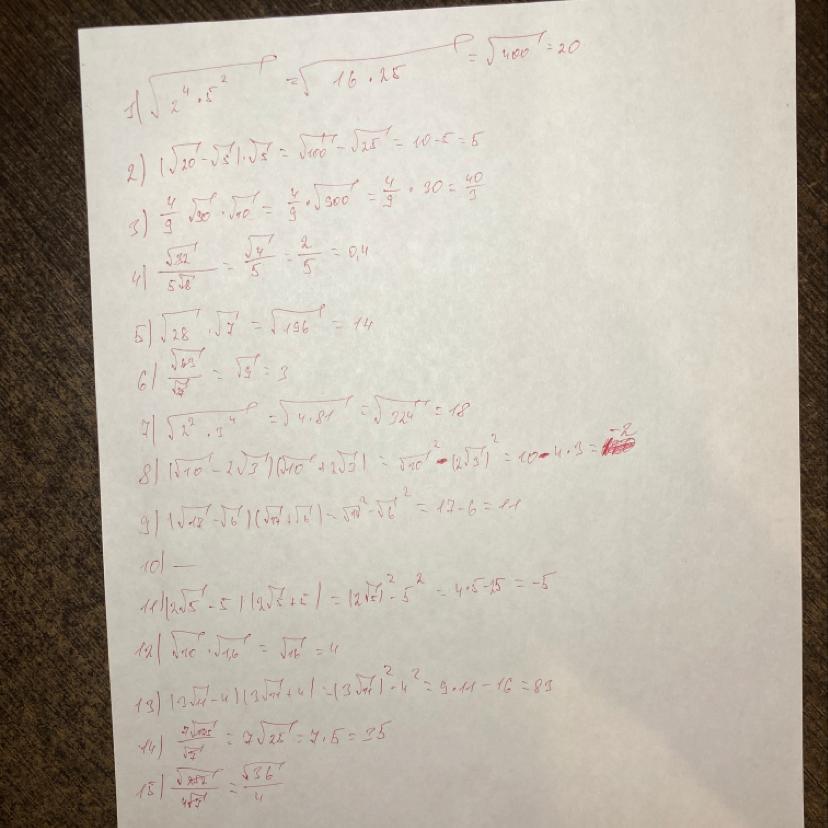 1) √(2⁴·5²) = √(16·25) = √400 = 20
2) (√20 - √5)·√5 = √100 - √25 = 10-5 = 5
3) 4/9 √90 · √10 = 4/9 · √900 = 4/9 · 30 = 40/3
4) √32/5√8 = √4/5 = 2/5 = 0,4
5) √28 · √7 = √196 = 14
6) = √9 = 3
7) √(2²·3⁴) = √(4·81) = √324 = 18
8) (√10 - 2√3)(√10 + 2√3) = √10² - (2√3)² = 10 - 4·3 = -2
9) (√17 - √6)(√17 + √6) = √17² - √6² = 17-6 = 11
10) —
11) (2√5 - 5)(2√5 + 5) = (2√5)² - 5² = 4·5-25 = -5
12) √10 · √1,6 = √16 = 4
13) (3√11 - 4)(3√11 + 4) = (3√11)² - 4² = 9·11 - 16 = 83
14) = 7√25 = 7·5 = 35
15) = √36/4